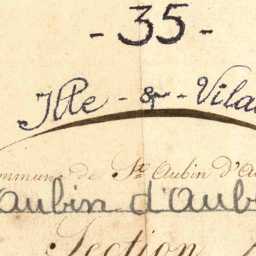 - 35 -
Ille - & - Vila
ommune de St Aubin D'Au
aubin d'Aub
Section